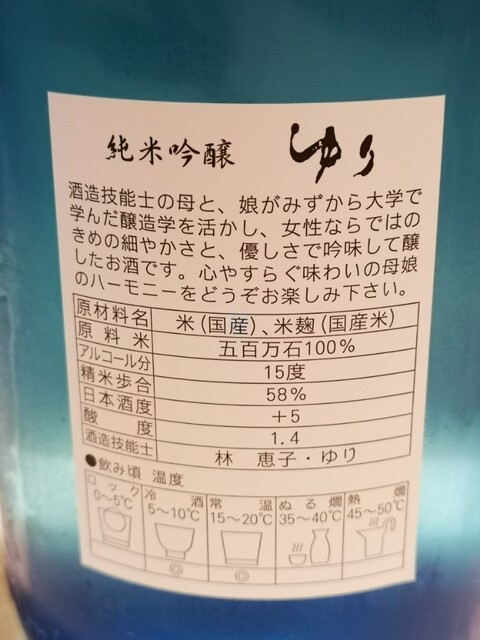 純米吟醸 ゆり
酒造技能士の母と、娘がみずから大学で
学んだ醸造学を活かし、女性ならではの
きめの細やかさと、優しさで吟味して醸
したお酒です。心やすらぐ味わいの母娘
のハーモニーをどうぞお楽しみ下さい。
原材料名 米(国産)、米麹(国産米)
原料米 五百万石100%
アルコール分 15度
精米歩合 58%
日本酒度 +5
酸度 1.4
酒造技能士 林 恵子・ゆり
●飲み頃 温度
ロック 冷酒 常温 ぬる燗 熱燗
0~5℃ 5~10℃ 15~20℃ 35~40℃ 45~50℃
◎ ◎